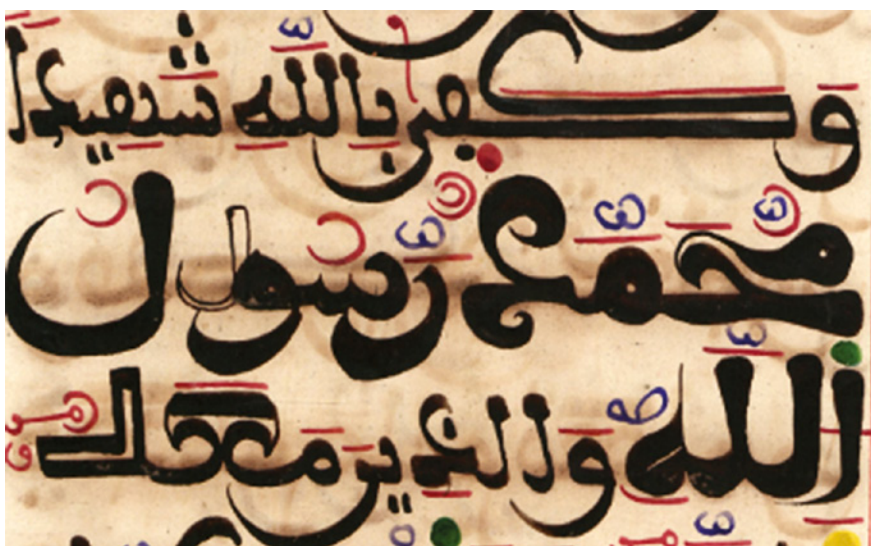 وكفى بالله شهيدا
محمد رسول
الله والذين معه